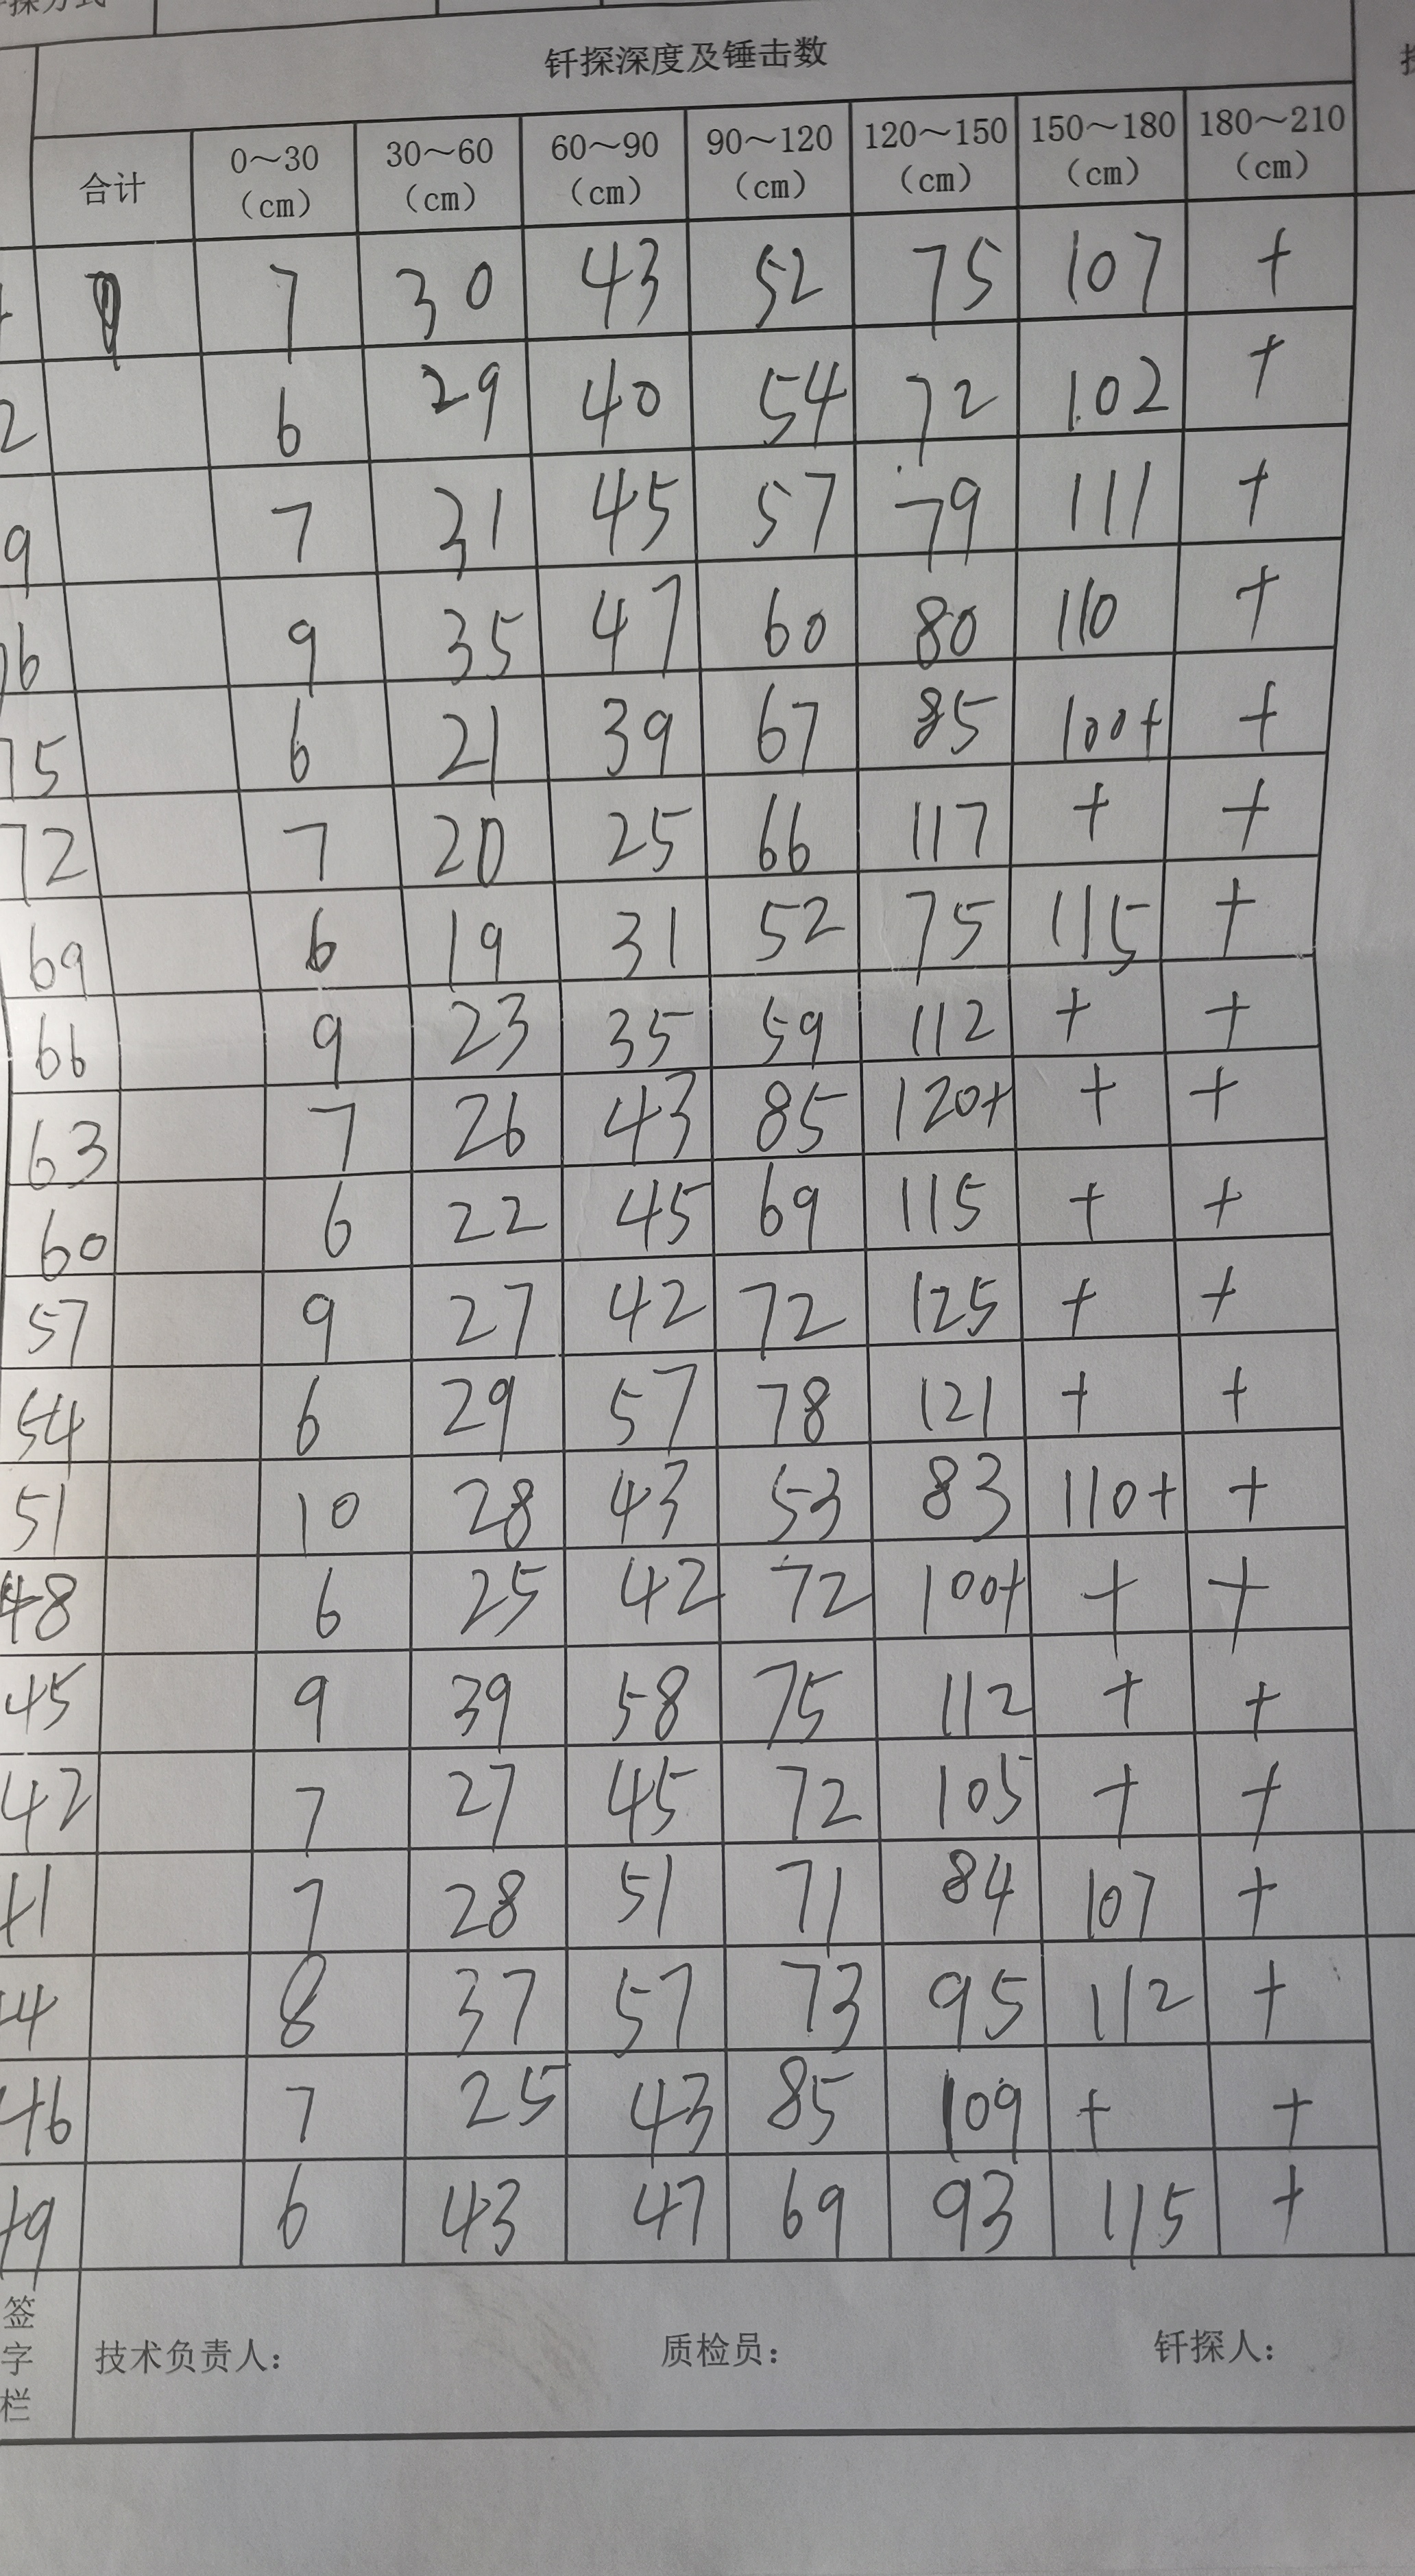 钎探深度及锤击数
合计 0～30 (cm) 30～60 (cm) 60～90 (cm) 90～120 (cm) 120～150 (cm) 150～180 (cm) 180～210 (cm)
7 30 43 52 75 107 +
2 6 29 40 54 72 102 +
9 7 31 45 57 79 111 +
6 9 35 47 60 80 110 +
75 6 21 39 67 85 100+ +
72 7 20 25 66 117 + +
69 6 19 31 52 75 115 +
66 9 23 35 59 112 + +
63 7 26 43 85 120+ + +
60 6 22 45 69 115 + +
57 9 27 42 72 125 + +
54 6 29 57 78 121 + +
51 10 28 43 53 83 110+ +
48 6 25 42 72 100+ + +
45 9 39 58 75 112 + +
42 7 27 45 72 105 + +
7 28 51 71 84 107 +
8 37 57 73 95 112 +
7 25 43 85 109 + +
6 43 47 69 93 115 +
签字栏 技术负责人: 质检员: 钎探人: